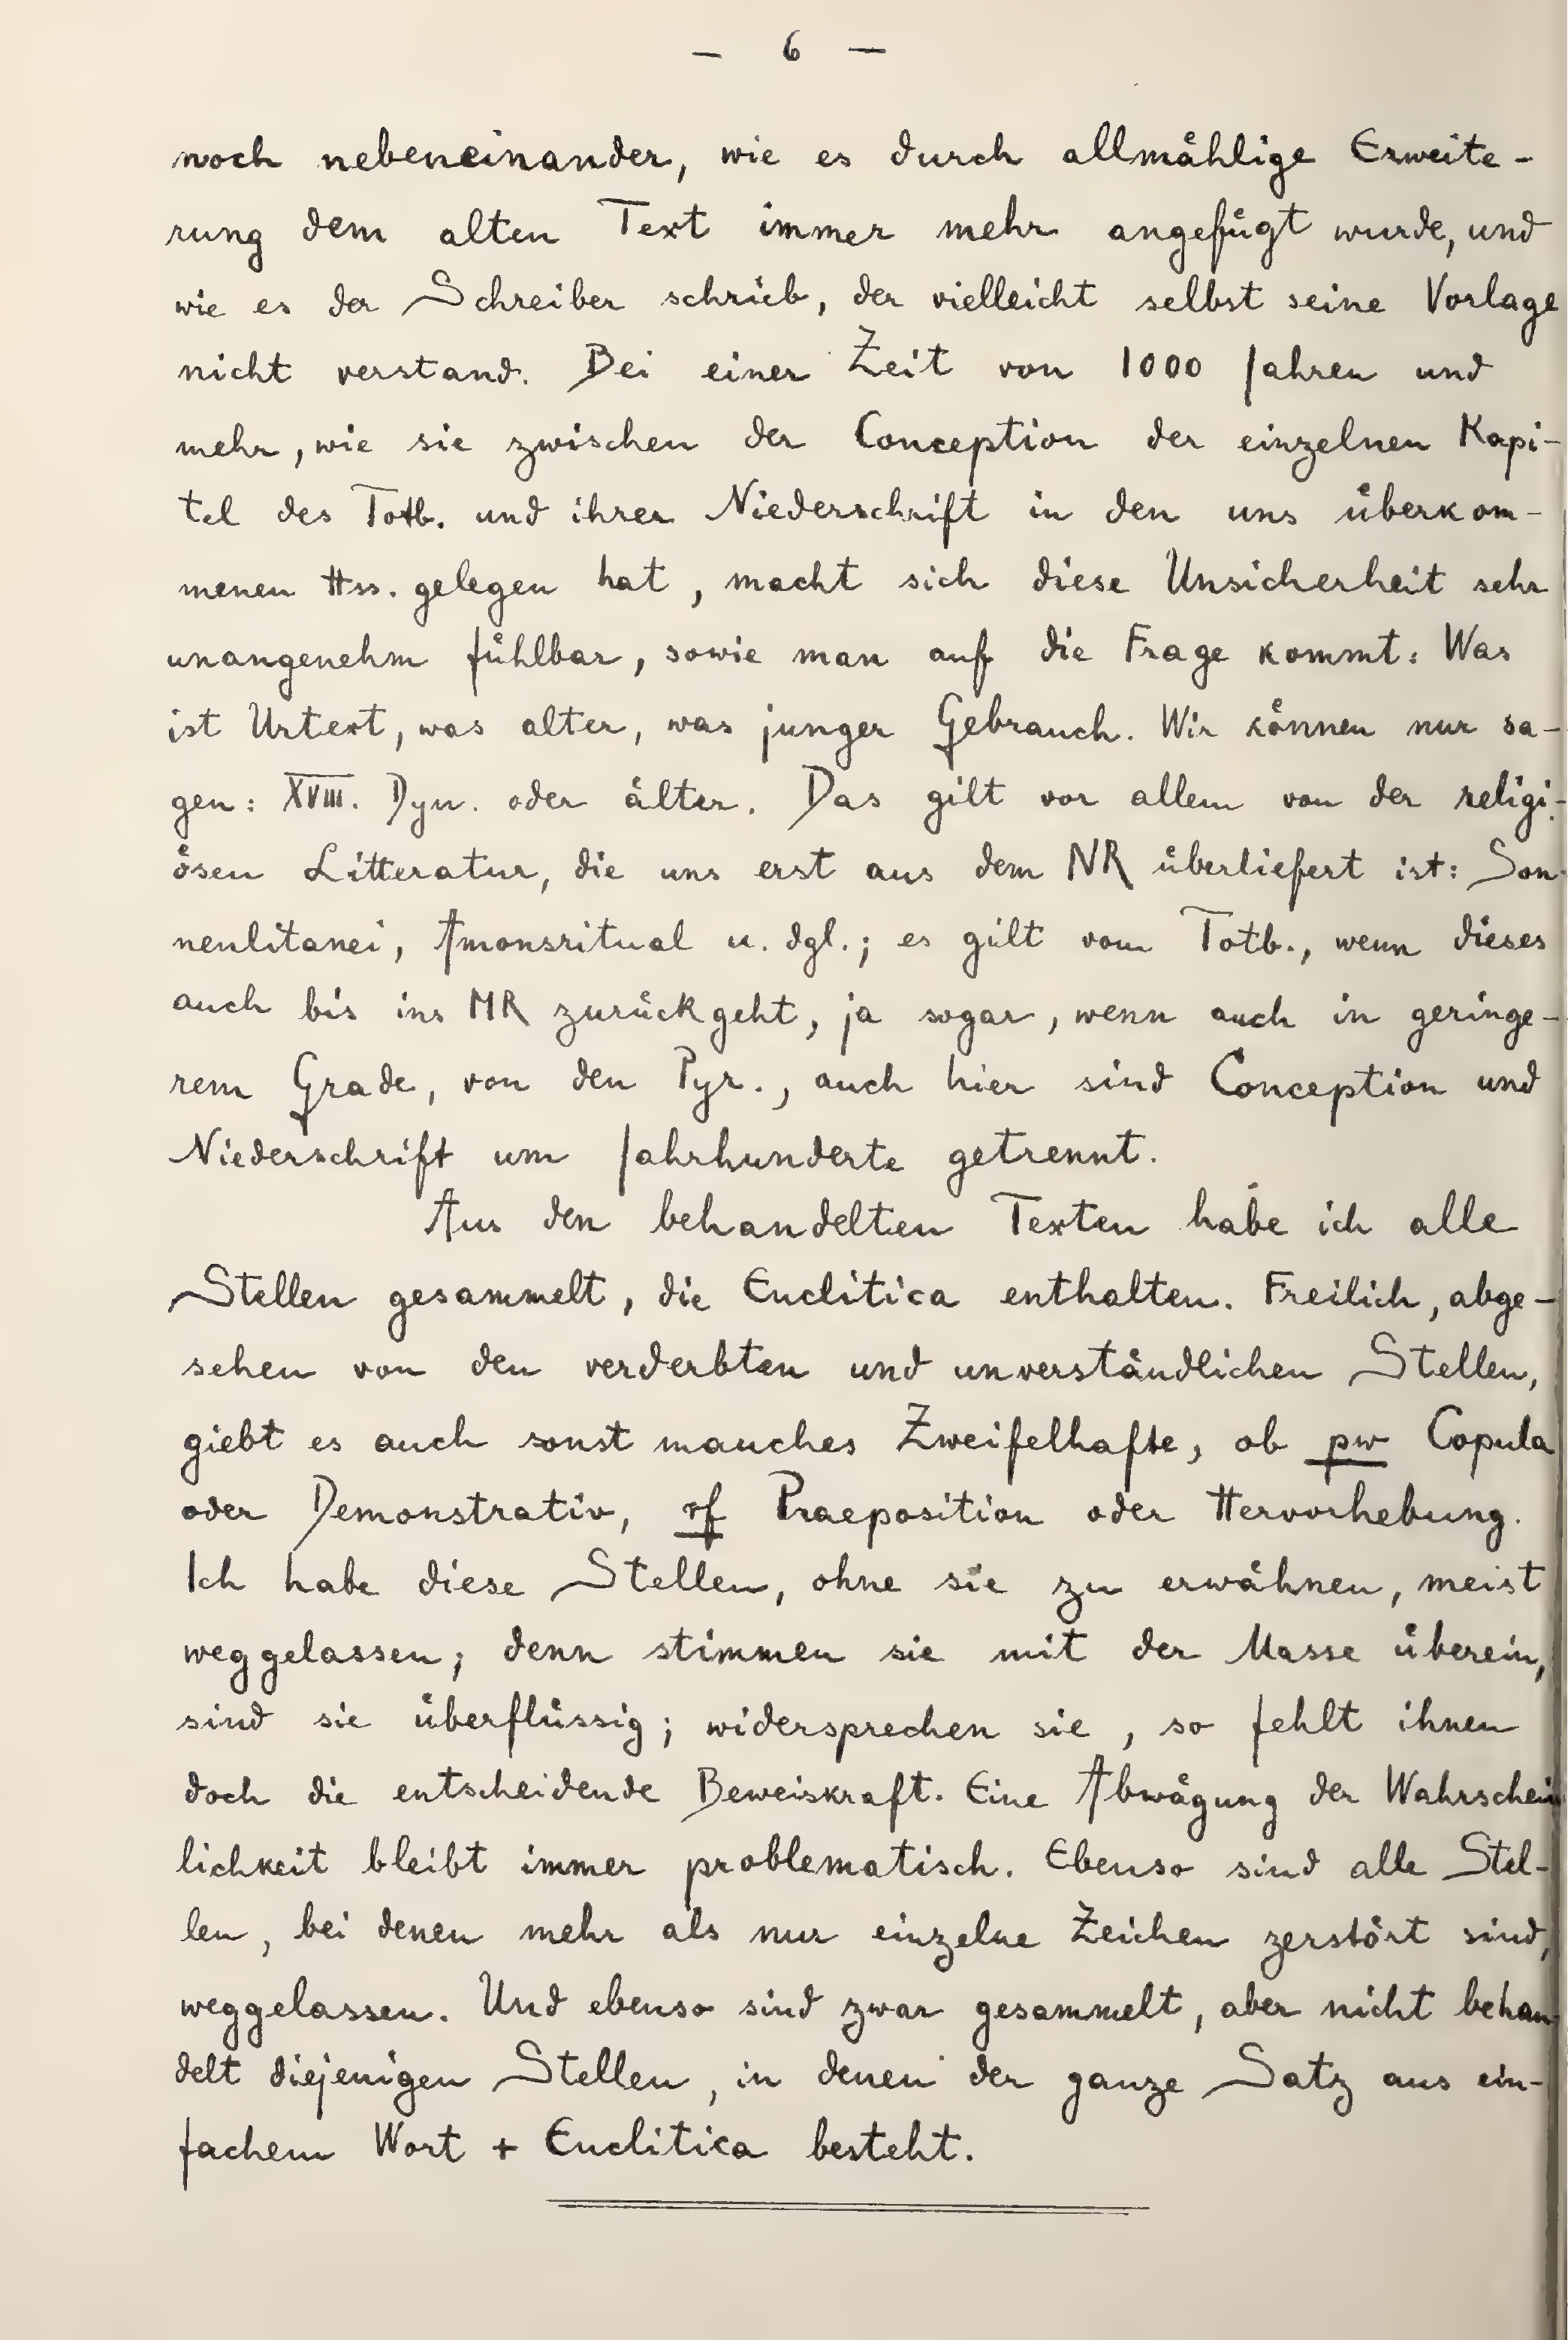 — 6 —
noch nebeneinander, wie es durch allmählige Erweite-
rung dem alten Text immer mehr angefügt wurde, und
wie es der Schreiber schrieb, der vielleicht selbst seine Vorlage
nicht verstand. Bei einer Zeit von 1000 Jahren und
mehr, wie sie zwischen der Conception der einzelnen Kapi-
tel des Totb. und ihrer Niederschrift in den uns überkom-
menen Hss. gelegen hat, macht sich diese Unsicherheit sehr
unangenehm fühlbar, sowie man auf die Frage kommt: Was
ist Urtext, was alter, was junger Gebrauch. Wir können nur sa-
gen: XVIII. Dyn. oder älter. Das gilt vor allem von der religi-
ösen Litteratur, die uns erst aus dem NR überliefert ist: Son-
nenlitanei, Amonsritual u. dgl.; es gilt vom Totb., wenn dieses
auch bis ins MR zurückgeht, ja sogar, wenn auch in geringe-
rem Grade, von den Pyr., auch hier sind Conception und
Niederschrift um Jahrhunderte getrennt.
Aus den behandelten Texten habe ich alle
Stellen gesammelt, die Enclitica enthalten. Freilich, abge-
sehen von den verderbten und unverständlichen Stellen,
giebt es auch sonst manches Zweifelhafte, ob pw Copula
oder Demonstrativ, rf Praeposition oder Hervorhebung.
Ich habe diese Stellen, ohne sie zu erwähnen, meist
weggelassen; denn stimmen sie mit der Masse überein,
sind sie überflüssig; widersprechen sie, so fehlt ihnen
doch die entscheidende Beweiskraft. Eine Abwägung der Wahrschein
lichkeit bleibt immer problematisch. Ebenso sind alle Stel-
len, bei denen mehr als nur einzelne Zeichen zerstört sind,
weggelassen. Und ebenso sind zwar gesammelt, aber nicht behan-
delt diejenigen Stellen, in denen der ganze Satz aus ein-
fachem Wort + Enclitica besteht.